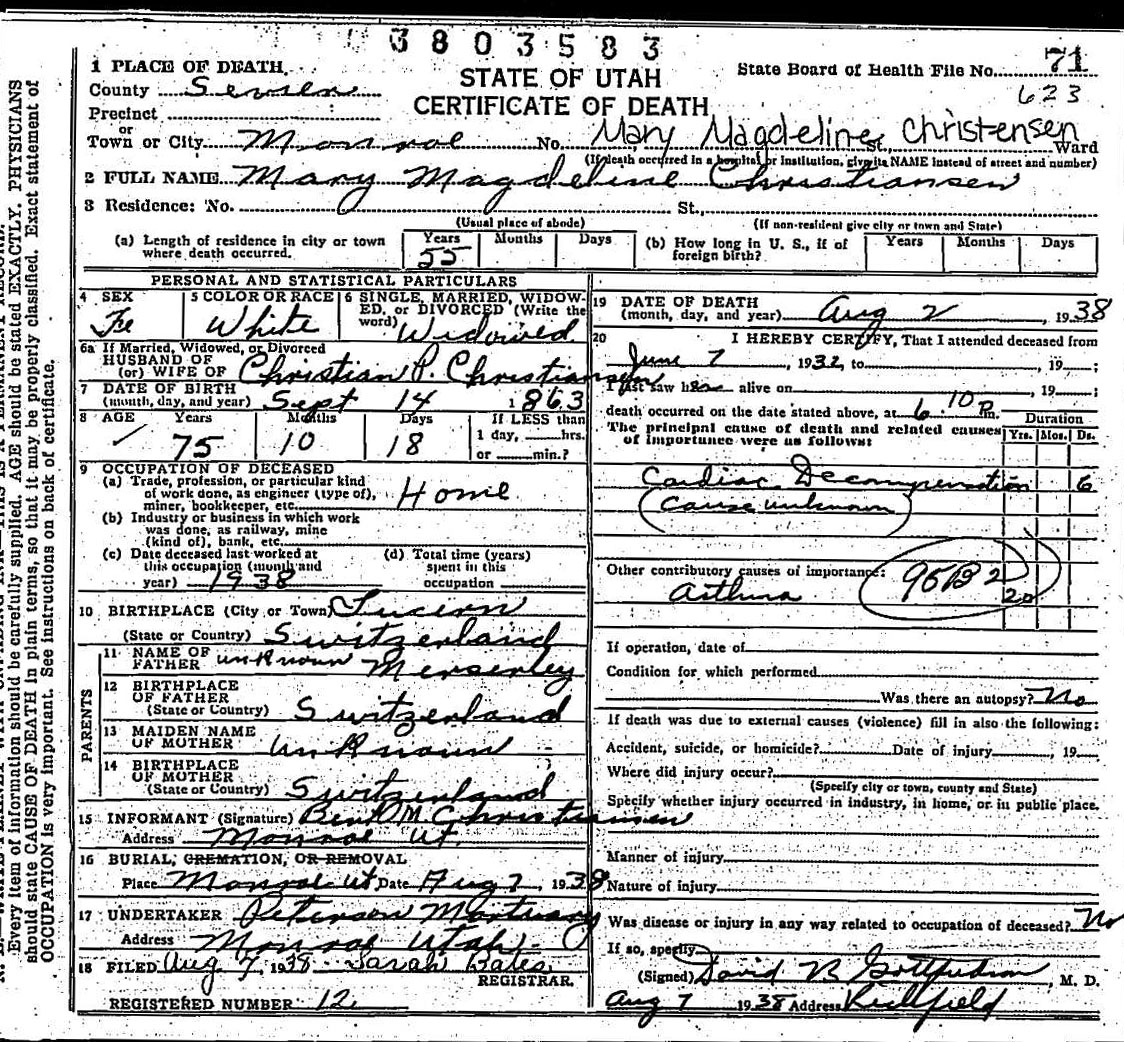 3803583
1 PLACE OF DEATH
STATE OF UTAH
State Board of Health File No. 71
County Sevier
CERTIFICATE OF DEATH
623
Precinct
or
Town or City Monroe No. Mary Magdeline St. Christensen Ward
(If death occurred in a hospital or institution, give its NAME instead of street and number)
2 FULL NAME Mary Magdeline Christiansen
3 Residence: No. St.,
(Usual place of abode) (If non-resident give city or town and State)
(a) Length of residence in city or town where death occurred. Years 55 Months Days
(b) How long in U. S., if of foreign birth? Years Months Days
PERSONAL AND STATISTICAL PARTICULARS
4 SEX Fe
5 COLOR OR RACE White
6 SINGLE, MARRIED, WIDOWED, or DIVORCED (Write the word) Widowed
6a If Married, Widowed, or Divorced
HUSBAND OF
(or) WIFE OF Christian P. Christiansen
7 DATE OF BIRTH
(month, day, and year) Sept 14 1863
8 AGE Years 75 Months 10 Days 18 If LESS than
1 day, hrs.
or min.?
9 OCCUPATION OF DECEASED
(a) Trade, profession, or particular kind
of work done, as engineer (type of),
miner, bookkeeper, etc. Home
(b) Industry or business in which work
was done, as railway, mine
(kind of), bank, etc.
(c) Date deceased last worked at
this occupation (month and
year) 1938
(d) Total time (years)
spent in this
occupation
10 BIRTHPLACE (City or Town) Lucern
(State or Country) Switzerland
PARENTS
11 NAME OF
FATHER unknown
12 BIRTHPLACE
OF FATHER
(State or Country) Switzerland
13 MAIDEN NAME
OF MOTHER unknown
14 BIRTHPLACE
OF MOTHER
(State or Country) Switzerland
15 INFORMANT (Signature) M. Christiansen
Address Monroe Ut.
16 BURIAL, CREMATION, OR REMOVAL
Place Monroe Ut Date Aug 7, 1938
17 UNDERTAKER Peterson Mortuary
Address Monroe Utah
18 FILED Aug 7, 1938 Sarah Bates
REGISTRAR.
REGISTERED NUMBER 12
19 DATE OF DEATH
(month, day, and year) Aug 2, 1938
20 I HEREBY CERTIFY, That I attended deceased from
June 7, 1932, to , 19 ;
I last saw h alive on , 19 ;
death occurred on the date stated above, at 6:10 P m.
The principal cause of death and related causes
of importance were as follows:
Duration
Yrs. Mos. Ds.
Cardiac Decompensation 6
(Cause unknown)
Other contributory causes of importance: 95B2
Asthma 20
If operation, date of
Condition for which performed
Was there an autopsy? No
If death was due to external causes (violence) fill in also the following:
Accident, suicide, or homicide? Date of injury , 19
Where did injury occur?
(Specify city or town, county and State)
Specify whether injury occurred in industry, in home, or in public place.
Manner of injury
Nature of injury
Was disease or injury in any way related to occupation of deceased? No
If so, specify
(Signed) David B Gottfredson, M. D.
Aug 7 1938 Address Richfield
Every item of information should be carefully supplied. AGE should be stated EXACTLY. PHYSICIANS
should state CAUSE OF DEATH in plain terms, so that it may be properly classified. Exact statement of
OCCUPATION is very important. See instructions on back of certificate.